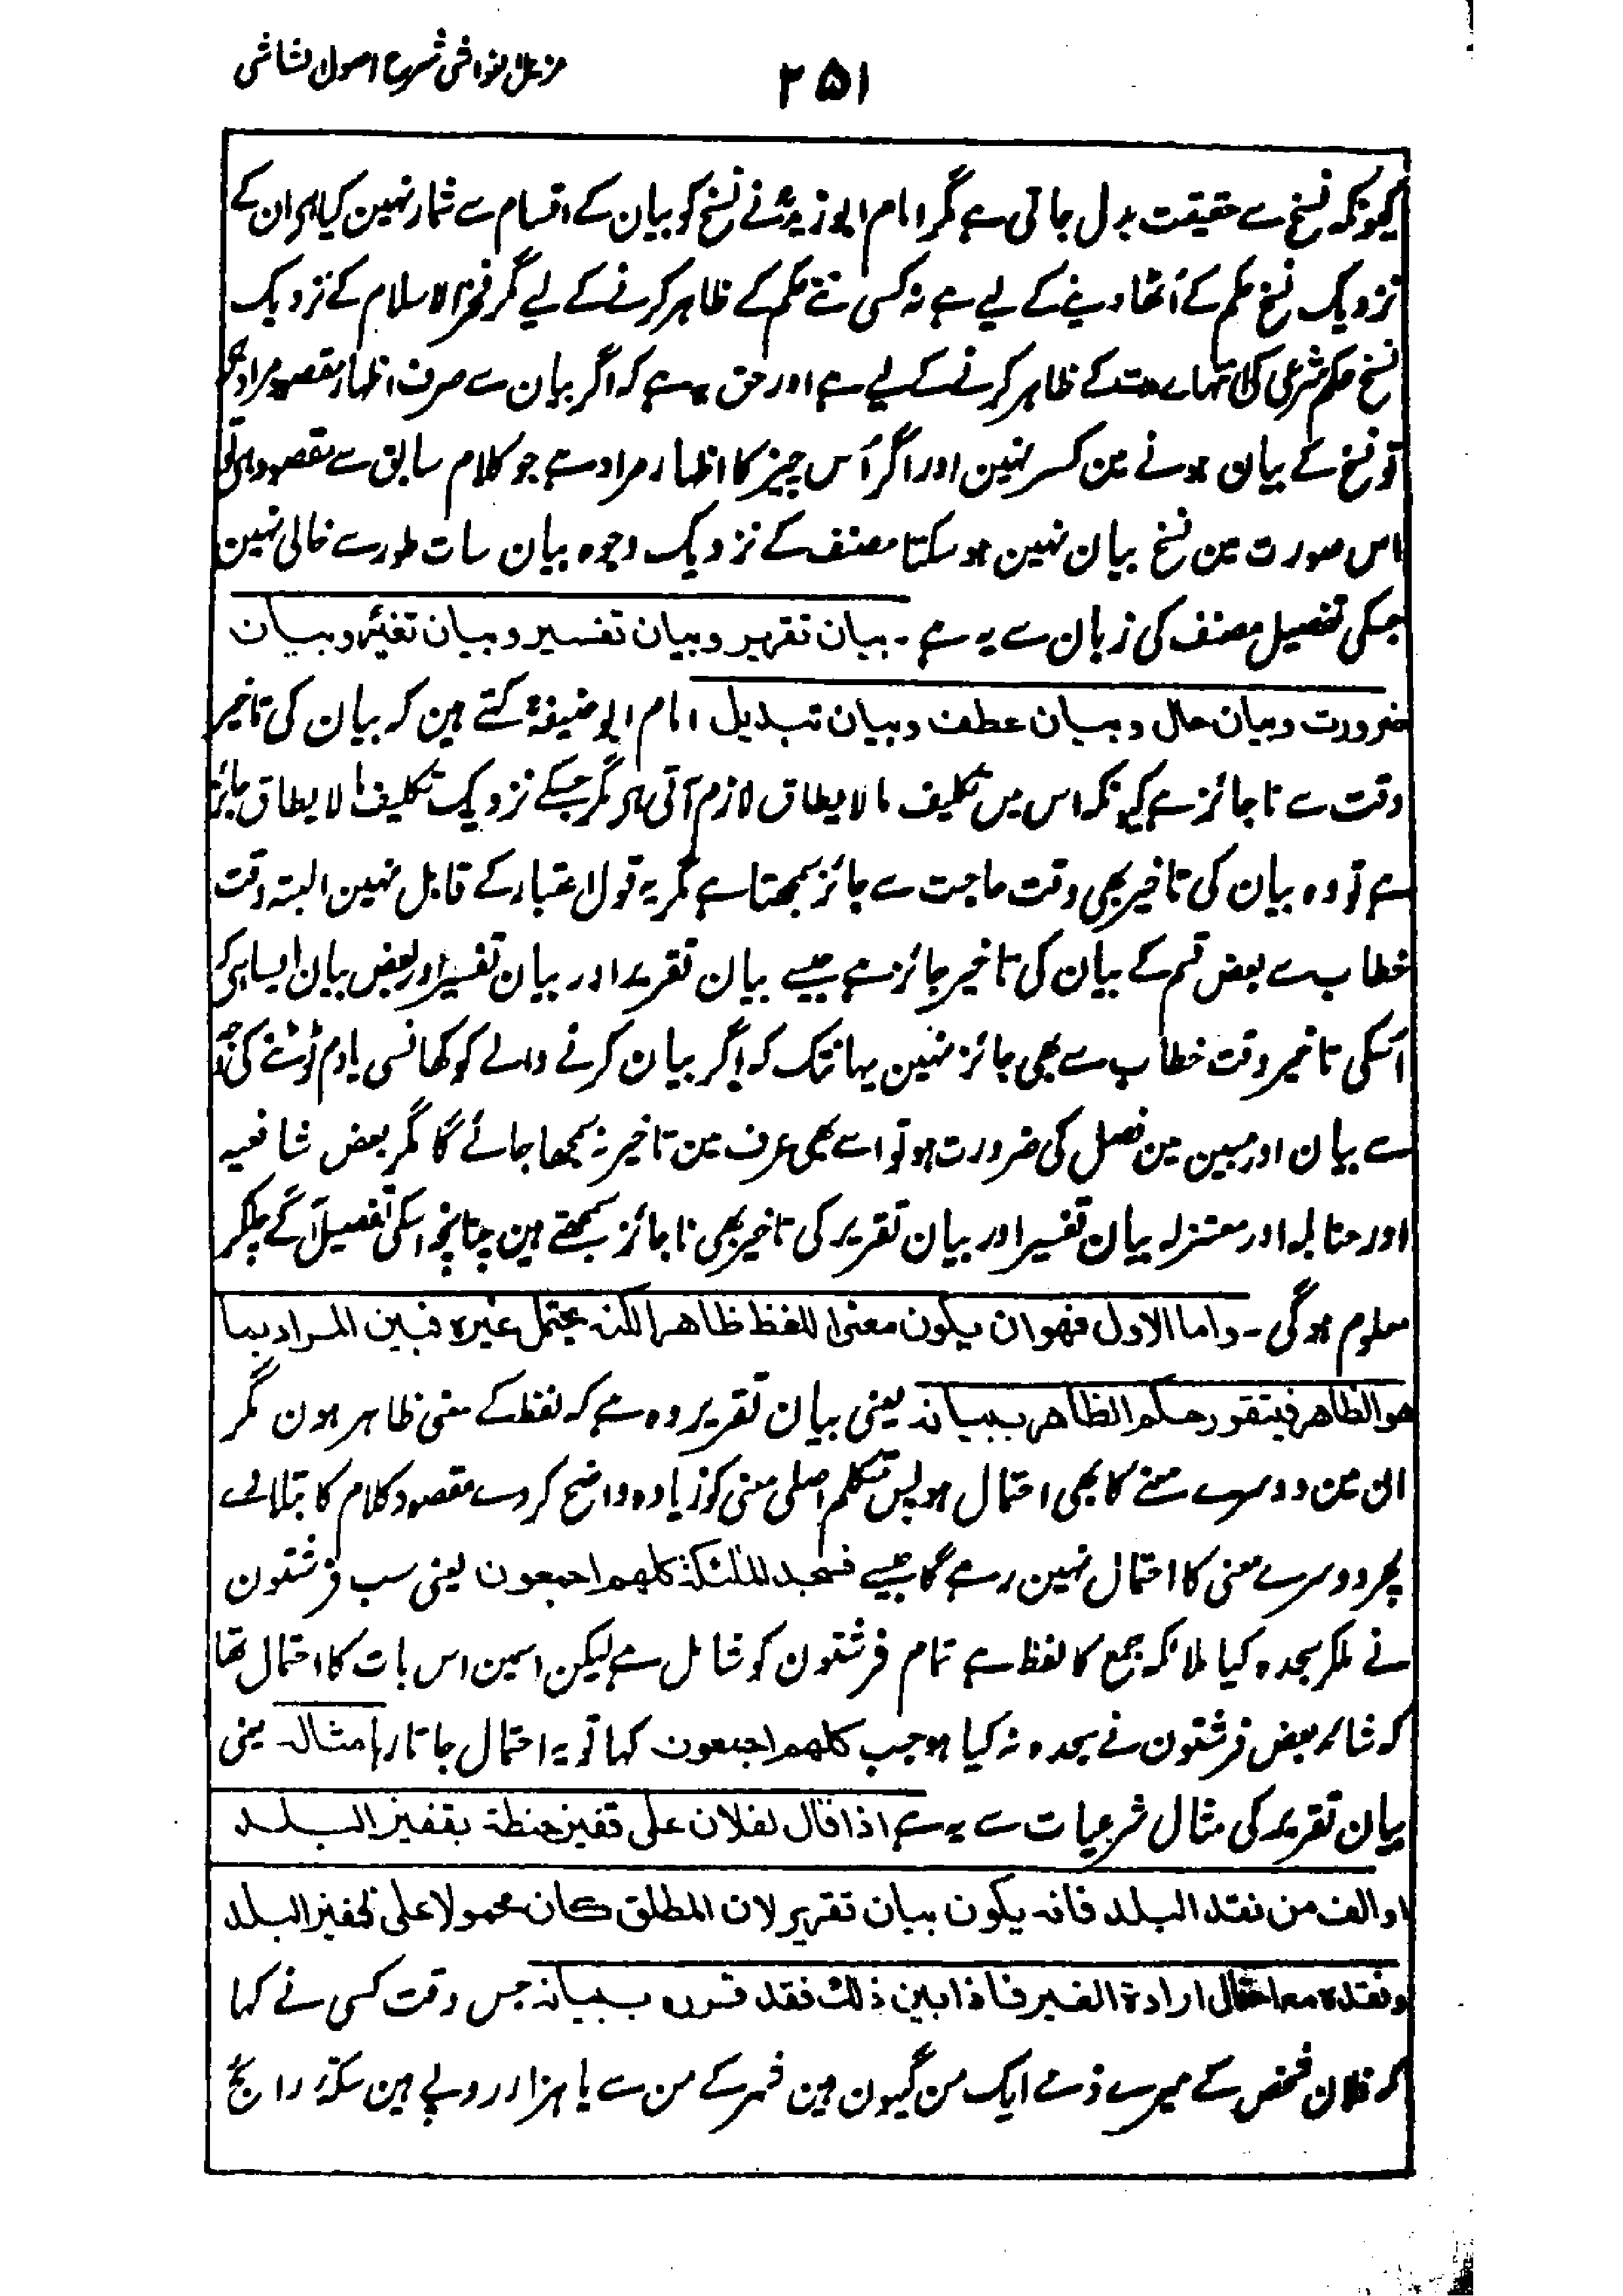 مزیل الغواشی شرح اصول الشاشی
۲۵۱
کیونکہ نسخ سے حقیقت بدل جاتی ہے مگر امام ابو زیدؒ نے نسخ کو بیان کے اقسام سے شمار نہین کیا ہے ان کے
نزدیک نسخ حکم کے اُٹھا دینے کے لیے ہے نہ کسی نئے حکم کے ظاہر کرنے کے لیے مگر فخر الاسلام کے نزدیک
نسخ حکم شرعی کی انتہاے مدت کے ظاہر کرنے کے لیے ہے اور حق یہ ہے کہ اگر بیان سے صرف اظہار مقصود مراد ہے
تو نسخ کے بیان ہونے مین کسر نہین اور اگر اُس چیز کا اظہار مراد ہے جو کلام سابق سے مقصود ہے تو
اس صورت مین نسخ بیان نہین ہوسکتا مصنف کے نزدیک وجوہ بیان سات طور سے خالی نہین
جسکی تفصیل مصنف کی زبان سے یہ ہے ۔ بیان تقریر وبیان تفسیر وبیان تغیّر وبیان
ضرورت وبیان حال وبیان عطف وبیان تبدیل امام ابو حنیفہؒ کہتے ہین کہ بیان کی تاخیر
وقت سے ناجائز ہے کیونکہ اس میں تکلیف مالا یطاق لازم آتی ہے مگر جسکے نزدیک تکلیف مالا یطاق جائز
ہے تو وہ بیان کی تاخیر بھی وقت حاجت سے جائز سمجھتا ہے مگر یہ قول اعتبار کے قابل نہین البتہ وقت
خطاب سے بعض قسم کے بیان کی تاخیر جائز ہے جیسے بیان تقریر اور بیان تفسیر اور بعض بیان ایسا ہے کہ
اُسکی تاخیر وقت خطاب سے بھی جائز نہین یہانتک کہ اگر بیان کرنے والے کو کھانسی یا دم ٹوٹنے کی وجہ
سے بیان اور مبین مین فصل کی ضرورت ہو تو اسے بھی عرف مین تاخیر نہ سمجھا جائے گا مگر بعض شافعیہ
اور حنابلہ اور معتزلہ بیان تفسیر اور بیان تقریر کی تاخیر بھی ناجائز سمجھتے ہین چنانچہ اسکی تفصیل آگے چلکر
معلوم ہوگی ۔ واما الاول فهو ان یکون معنی اللفظ ظاهرا لکنه یحتمل غیره فبین المراد بما
هو الظاهر فیتقرر حکم الظاهر ببیانه یعنی بیان تقریر وہ ہے کہ لفظ کے معنی ظاہر ہون مگر
اس مین دوسرے معنے کا بھی احتمال ہو پس متکلم اصلی معنی کو زیادہ واضح کر دے مقصود کلام کا بتلا لے
پھر دوسرے معنی کا احتمال نہین رہے گا جیسے فسجد الملٰئکة کلهم اجمعون یعنی سب فرشتون
نے ملکر سجدہ کیا ملائکہ جمع کا لفظ ہے تمام فرشتون کو شامل ہے لیکن اسمین اس بات کا احتمال تھا
کہ شائد بعض فرشتون نے سجدہ نہ کیا ہو جب کلهم اجمعون کہا تو یہ احتمال جاتا رہا مثاله یعنی
بیان تقریر کی مثال شرعیات سے یہ ہے اذا قال لفلان علی قفیز حنطة بقفیز البلد
او الف من نقد البلد فانه یکون بیان تقریر لان المطلق کان محمولا علی قفیز البلد
ونقده مع احتمال ارادة الغیر فاذا بین ذلك فقد قرره ببیانه جس وقت کسی نے کہا
کہ فلان شخص کے میرے ذمے ایک من گیہون ہین شہر کے من سے یا ہزار روپے ہین سکۂ رائج